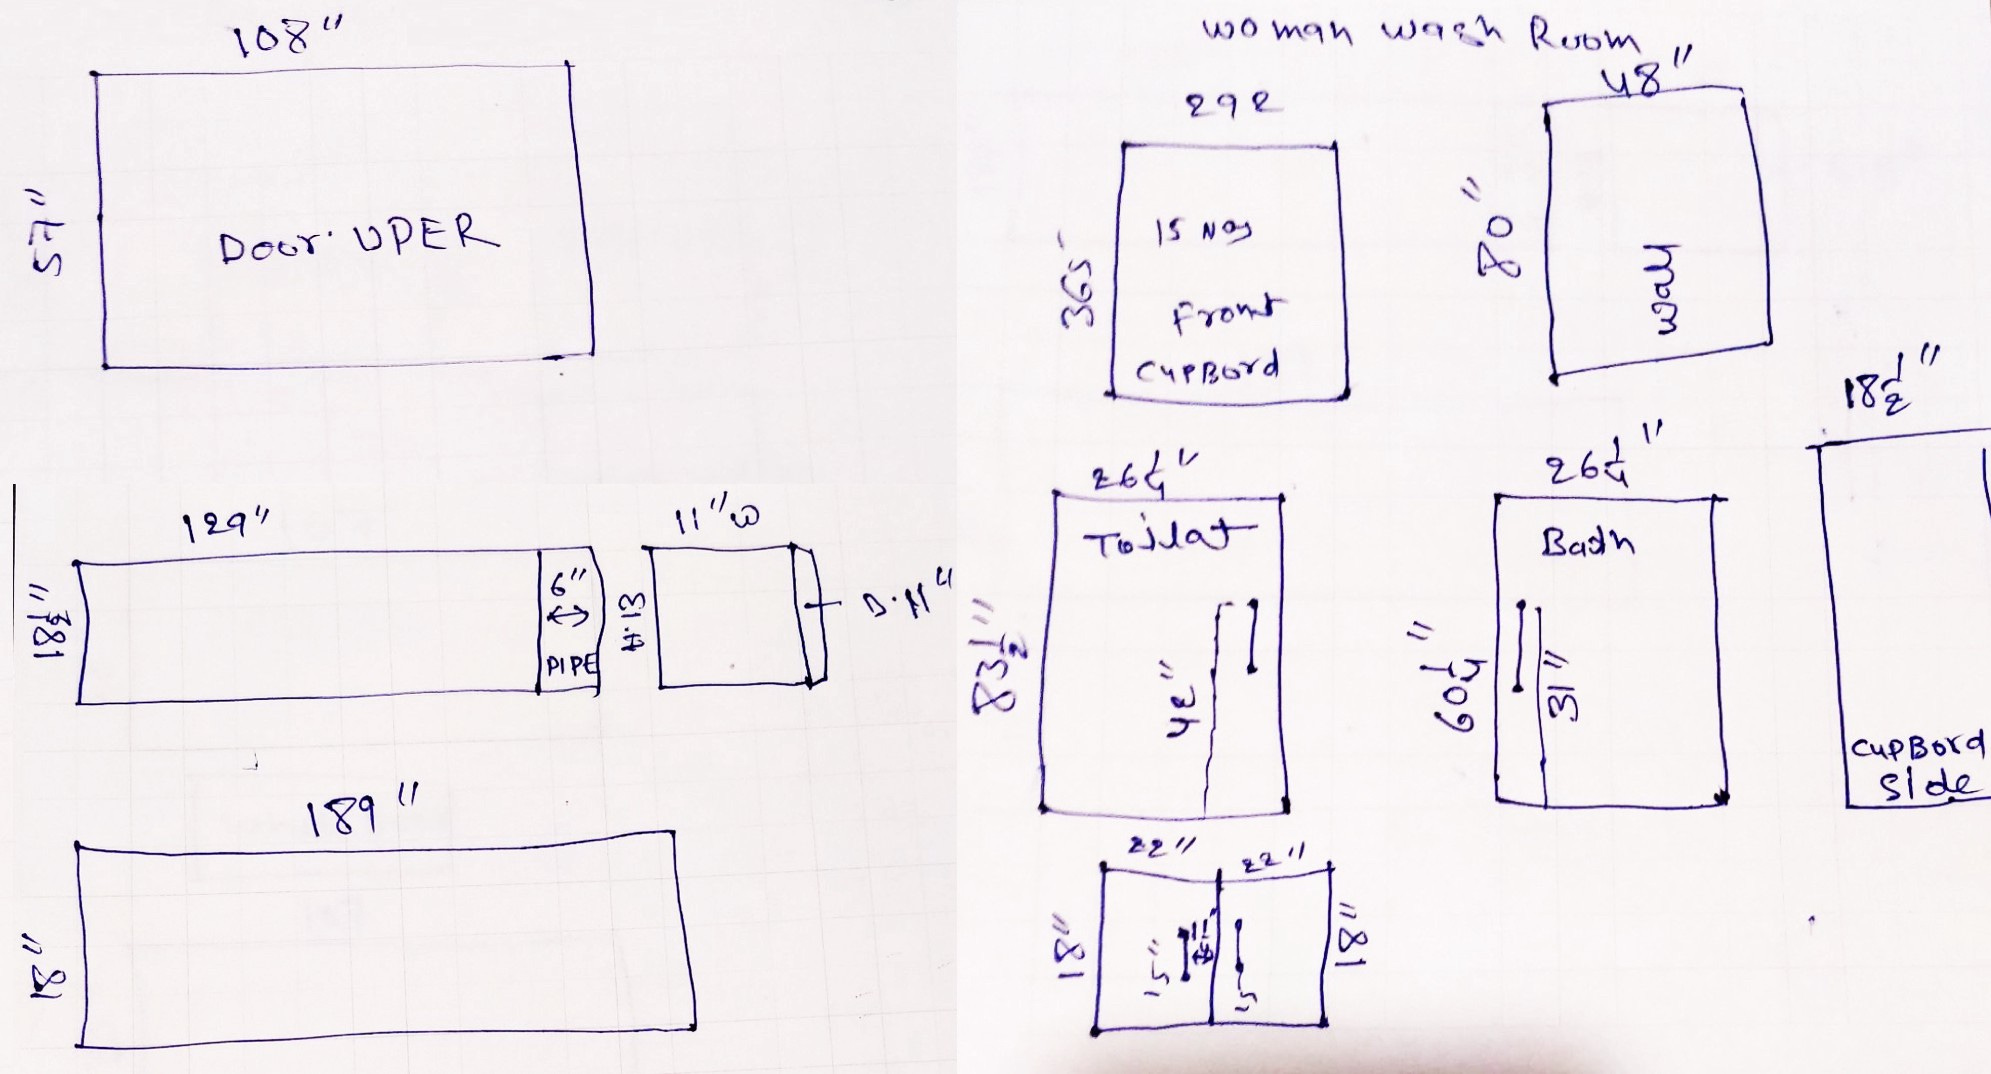 108"
57"
Door UPER
129"
6"
PIPE
H.13
11"W
D.11"
189"
18"
woman wash Room
292
365
15 Nos
Front
CupBord
48"
80"
wall
26 1/4"
Toilat
83 1/2"
42"
26 1/4"
Bath
60 1/4"
31"
18 1/2"
CupBord
Side
22"
22"
18"
15"
18"